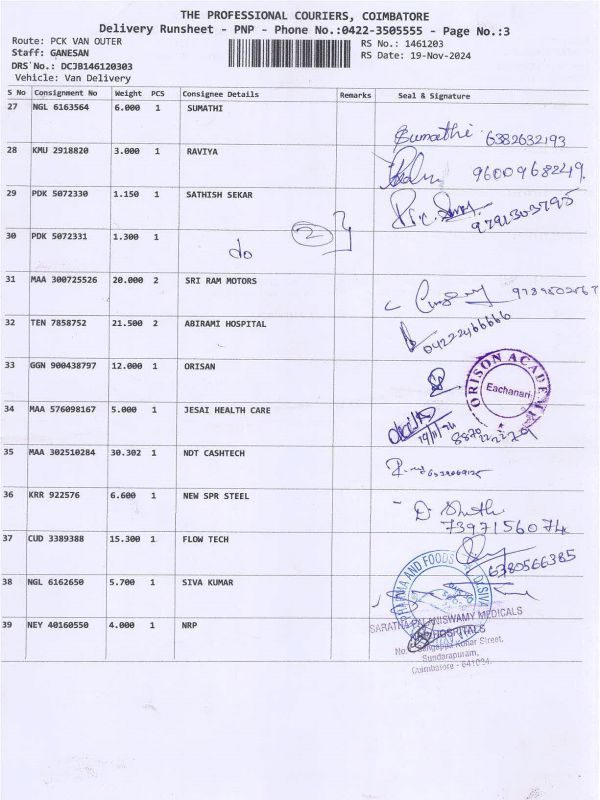 THE PROFESSIONAL COURIERS, COIMBATORE
Delivery Runsheet - PNP - Phone No.:0422-3505555 - Page No.:3
Route: PCK VAN OUTER
RS No.: 1461203
Staff: GANESAN
RS Date: 19-Nov-2024
DRS No.: DCJB146120303
Vehicle: Van Delivery
S No Consignment No Weight PCS Consignee Details Remarks Seal & Signature
27 NGL 6163564 6.000 1 SUMATHI
Sumathi 6382632193
28 KMU 2918820 3.000 1 RAVIYA
9600968249.
29 PDK 5072330 1.150 1 SATHISH SEKAR
9791303795
30 PDK 5072331 1.300 1
do 2
31 MAA 300725526 20.000 2 SRI RAM MOTORS
32 TEN 7858752 21.500 2 ABIRAMI HOSPITAL
04222466666
33 GGN 900438797 12.000 1 ORISAN
ORISON ACADEMY
Eachanari
34 MAA 576098167 5.000 1 JESAI HEALTH CARE
19/11/24
35 MAA 302510284 30.302 1 NDT CASHTECH
36 KRR 922576 6.600 1 NEW SPR STEEL
37 CUD 3389388 15.300 1 FLOW TECH
6380566385
38 NGL 6162650 5.700 1 SIVA KUMAR
PHARMA AND FOODS
39 NEY 40160550 4.000 1 NRP
MEDICALS
HOSPITALS
Street,
Sundarapuram,
Coimbatore - 641024.